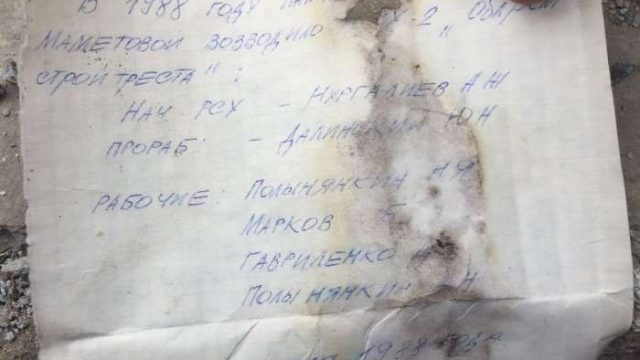 В 1988 ГОДУ
МАМЕТОВОЙ ВОЗВОДИЛО -2 „
СТРОЙТРЕСТА":
НАЧ. РСХ - НУРГАЛИЕВ А Ж
ПРОРАБ - ДАЛИНСКИЙ Ю Н
РАБОЧИЕ ПОЛЫНЯНКИН Н Я
МАРКОВ Б
ГАВРИЛЕНКО
ПОЛЫНЯНКИН Н
1988 года